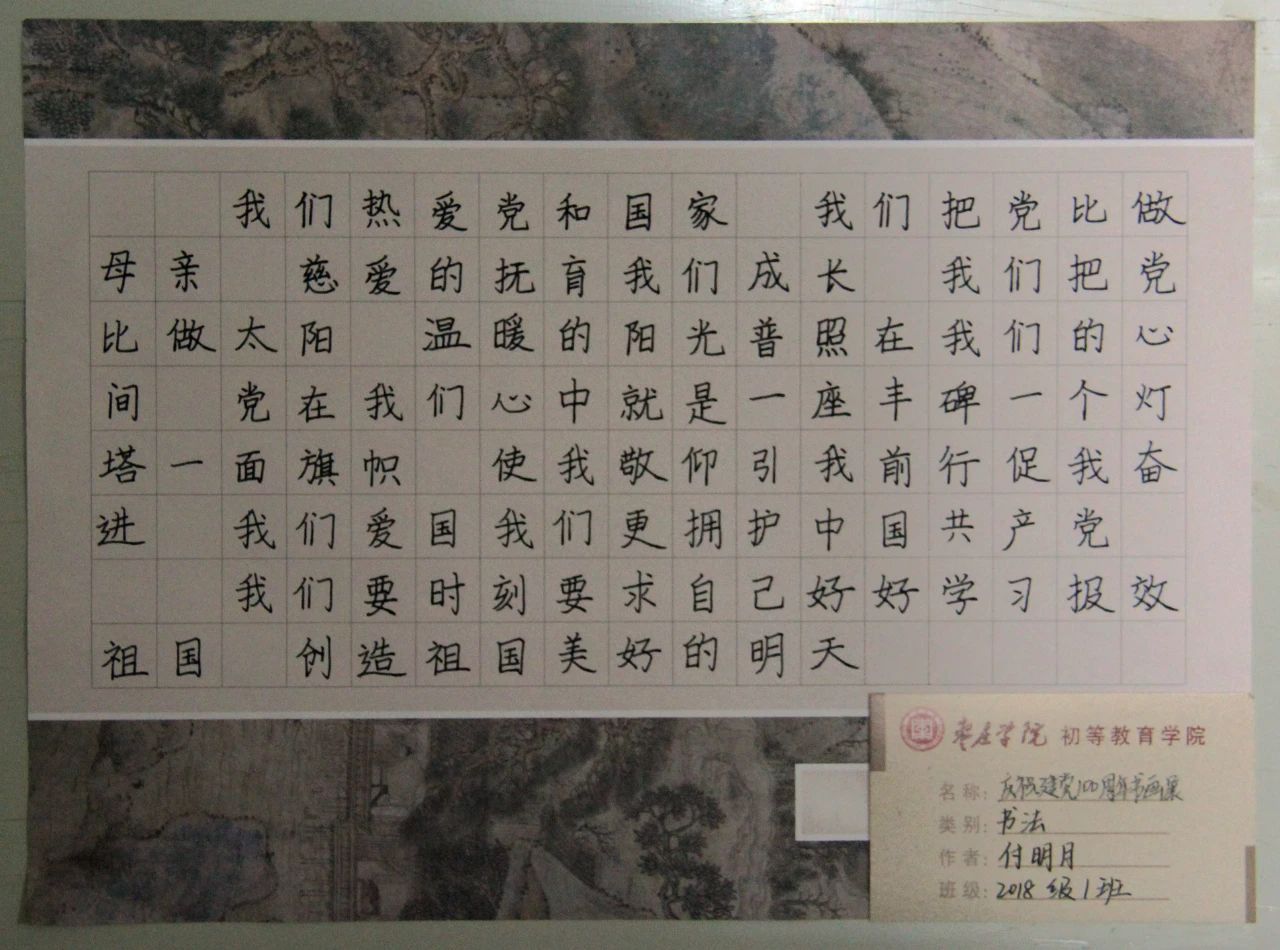 我们热爱党和国家 我们把党比做
母亲 慈爱的抚育我们成长 我们把党
比做太阳 温暖的阳光普照在我们的心
间 党在我们心中就是一座丰碑一个灯
塔一面旗帜 使我敬仰引我前行促我奋
进 我们爱国我们更拥护中国共产党
我们要时刻要求自己好好学习报效
祖国 创造祖国美好的明天
枣庄学院 初等教育学院
名称: 庆祝建党100周年书画展
类别: 书法
作者: 付明月
班级: 2018级1班